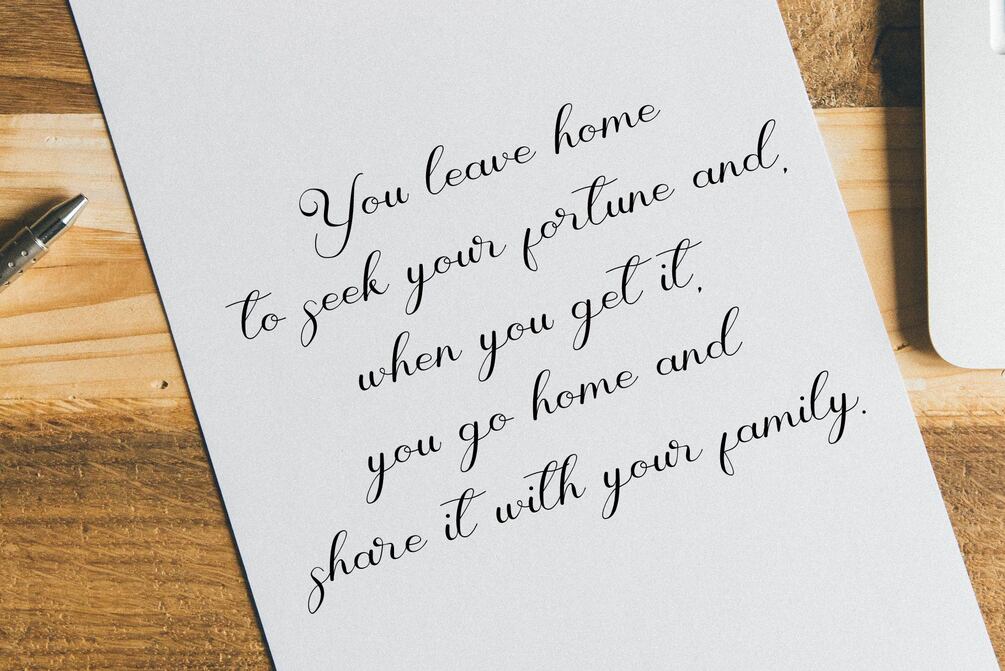 You leave home
to seek your fortune and,
when you get it,
you go home and
share it with your family.